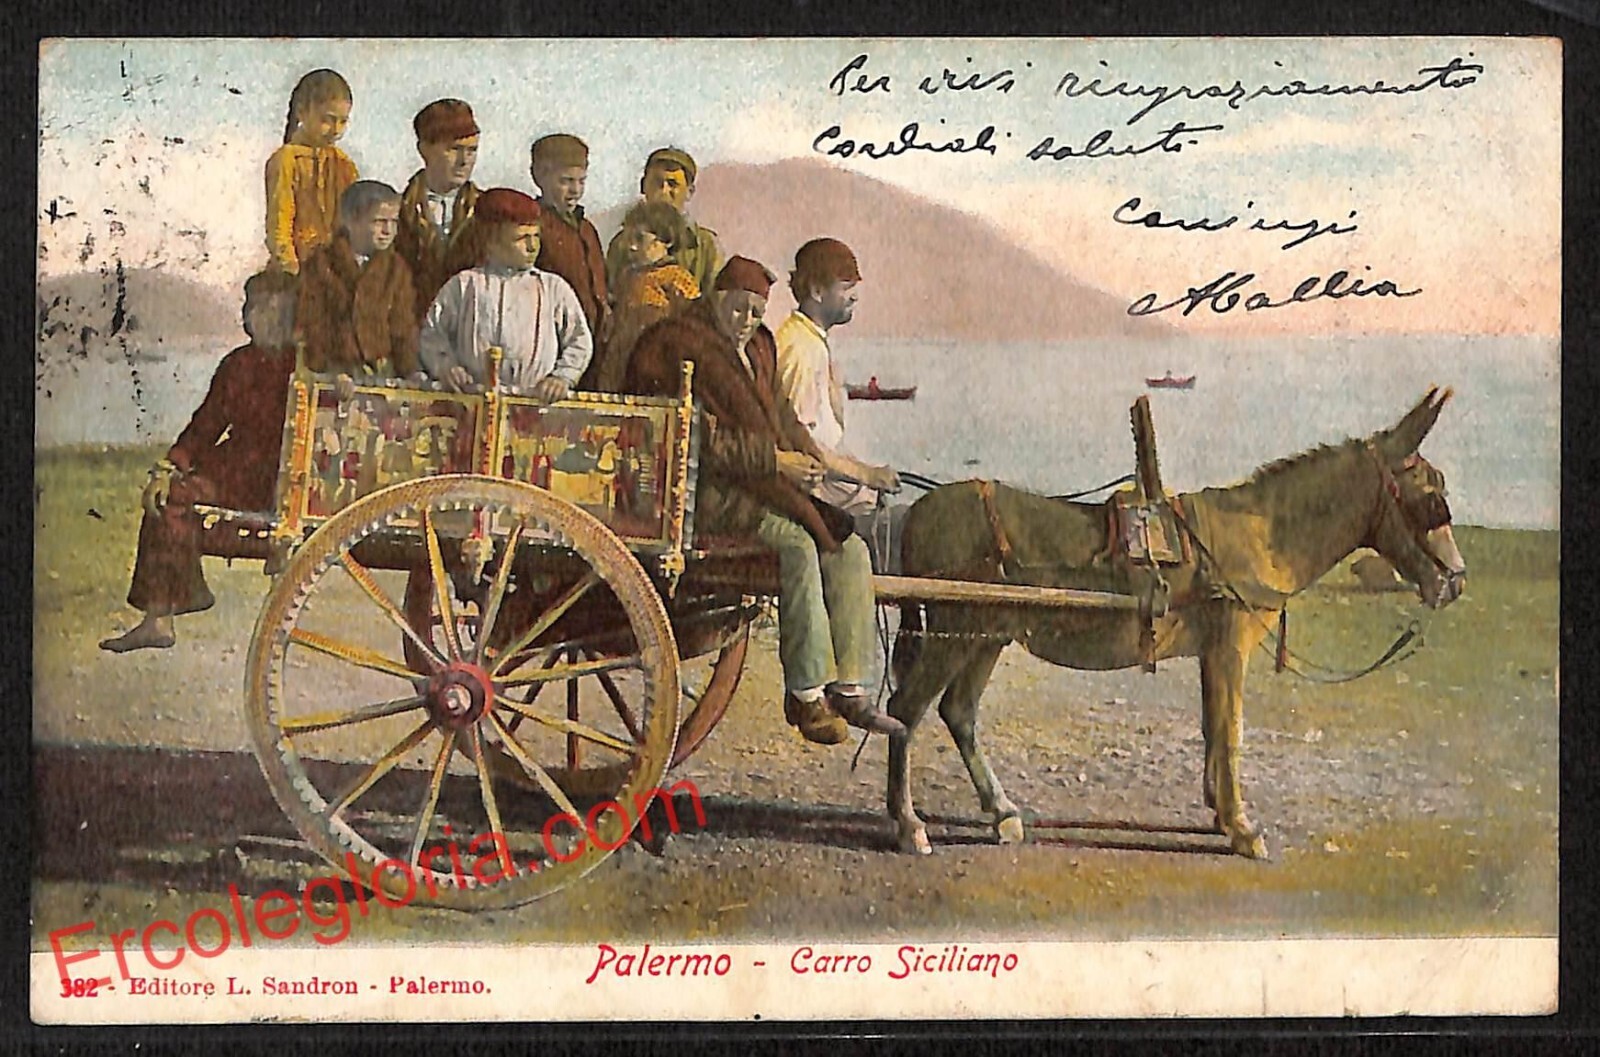 Per vivi ringraziamento
Cordiali saluti
Coniugi
Mallia
Palermo - Carro Siciliano
382 - Editore L. Sandron - Palermo.
Ercolegloria.com